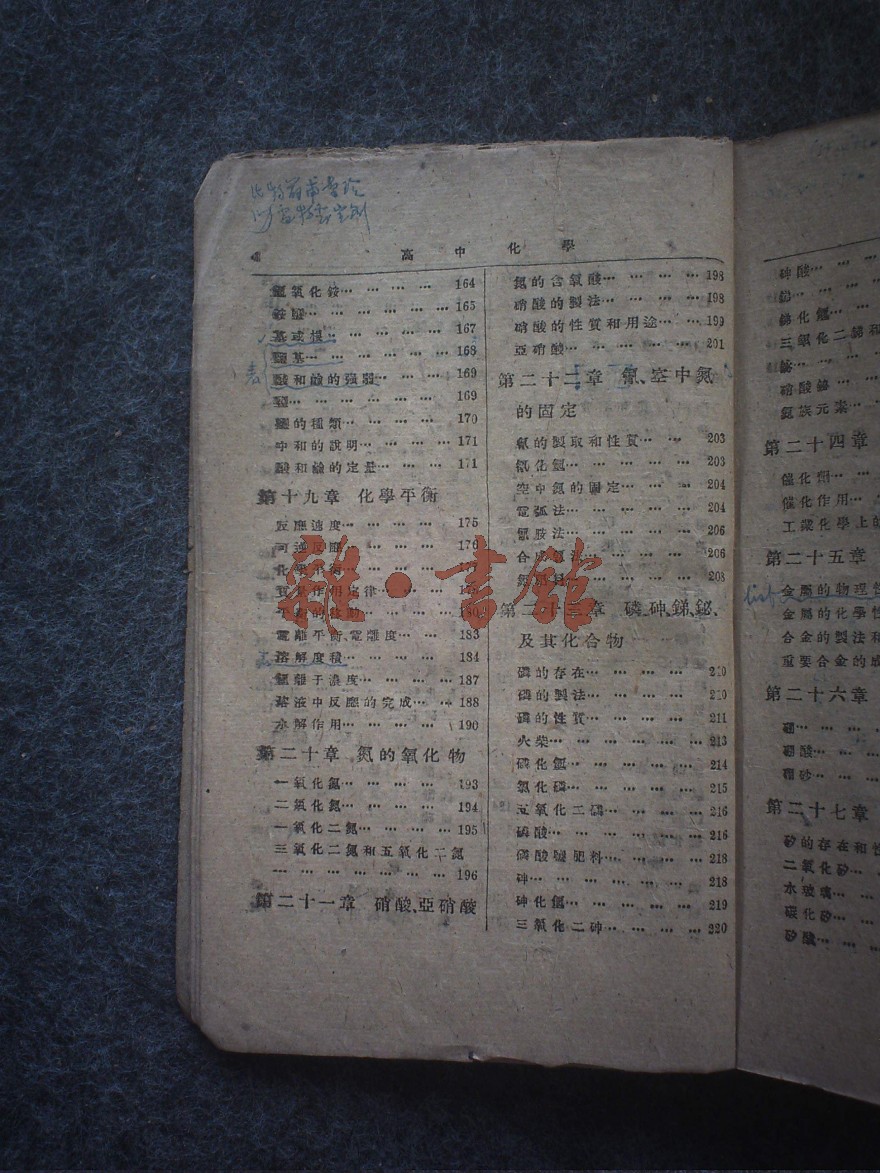 4 高中化學
氫氧化銨… … … … 164
銨鹽… … … … … … 165
基或根… … … … … 167
鹽基… … … … … … 168
酸和鹼的强弱… … … 169
鹽… … … … … 169
鹽的種類… … … … 170
中和的說明… … … … 171
酸和鹼的定量… … … 171
第十九章 化學平衡
反應速度… … … … 175
可逆反應… … … … 176
化學平衡
質量作用定律
平衡的移動
電離平衡、電離度… … 183
溶解度積… … … … 184
氫離子濃度… … … … 187
溶液中反應的完成… … 188
水解作用… … … … 190
第二十章 氮的氧化物
一氧化氮… … … … 193
二氧化氮… … … … 194
一氧化二氮… … … … 195
三氧化二氮和五氧化二氮
… … … … … … … 196
第二十一章 硝酸、亞硝酸
氮的含氧酸… … … … 198
硝酸的製法… … … … 198
硝酸的性質和用途… … 199
亞硝酸… … … … … 201
第二十二章 氰、空中氮
的固定
氰的製取和性質… … 203
氰化氫… … … … … 203
空中氮的固定… … … 204
電弧法… … … … … 204
氰胺法… … … … … 206
合成氨法… … … … 206
氮循環… … … … … 208
第二十三章 磷、砷、銻、鉍、
及其化合物
磷的存在… … … … 210
磷的製法… … … … 210
磷的性質… … … … 211
火柴… … … … … … 213
磷化氫… … … … … 214
氯化磷… … … … … 215
五氧化二磷… … … … 216
磷酸… … … … … … 216
磷酸鹽肥料… … … … 218
砷… … … … … … 218
砷化氫… … … … … 219
三氧化二砷… … … … 220
砷酸… … …
銻… … …
銻化氫… …
三氧化二銻和
鉍… … …
硝酸鉍… …
氮族元素… …
第二十四章
催化劑… …
催化作用… …
工業化學上的
第二十五章
金屬的物理性
金屬的化學性
合金的製法和
重要合金的成
第二十六章
硼… … …
硼酸… …
硼砂… …
第二十七章
矽的存在和性
二氧化矽… …
水玻璃… …
碳化矽… …
矽酸… …
雜·書館